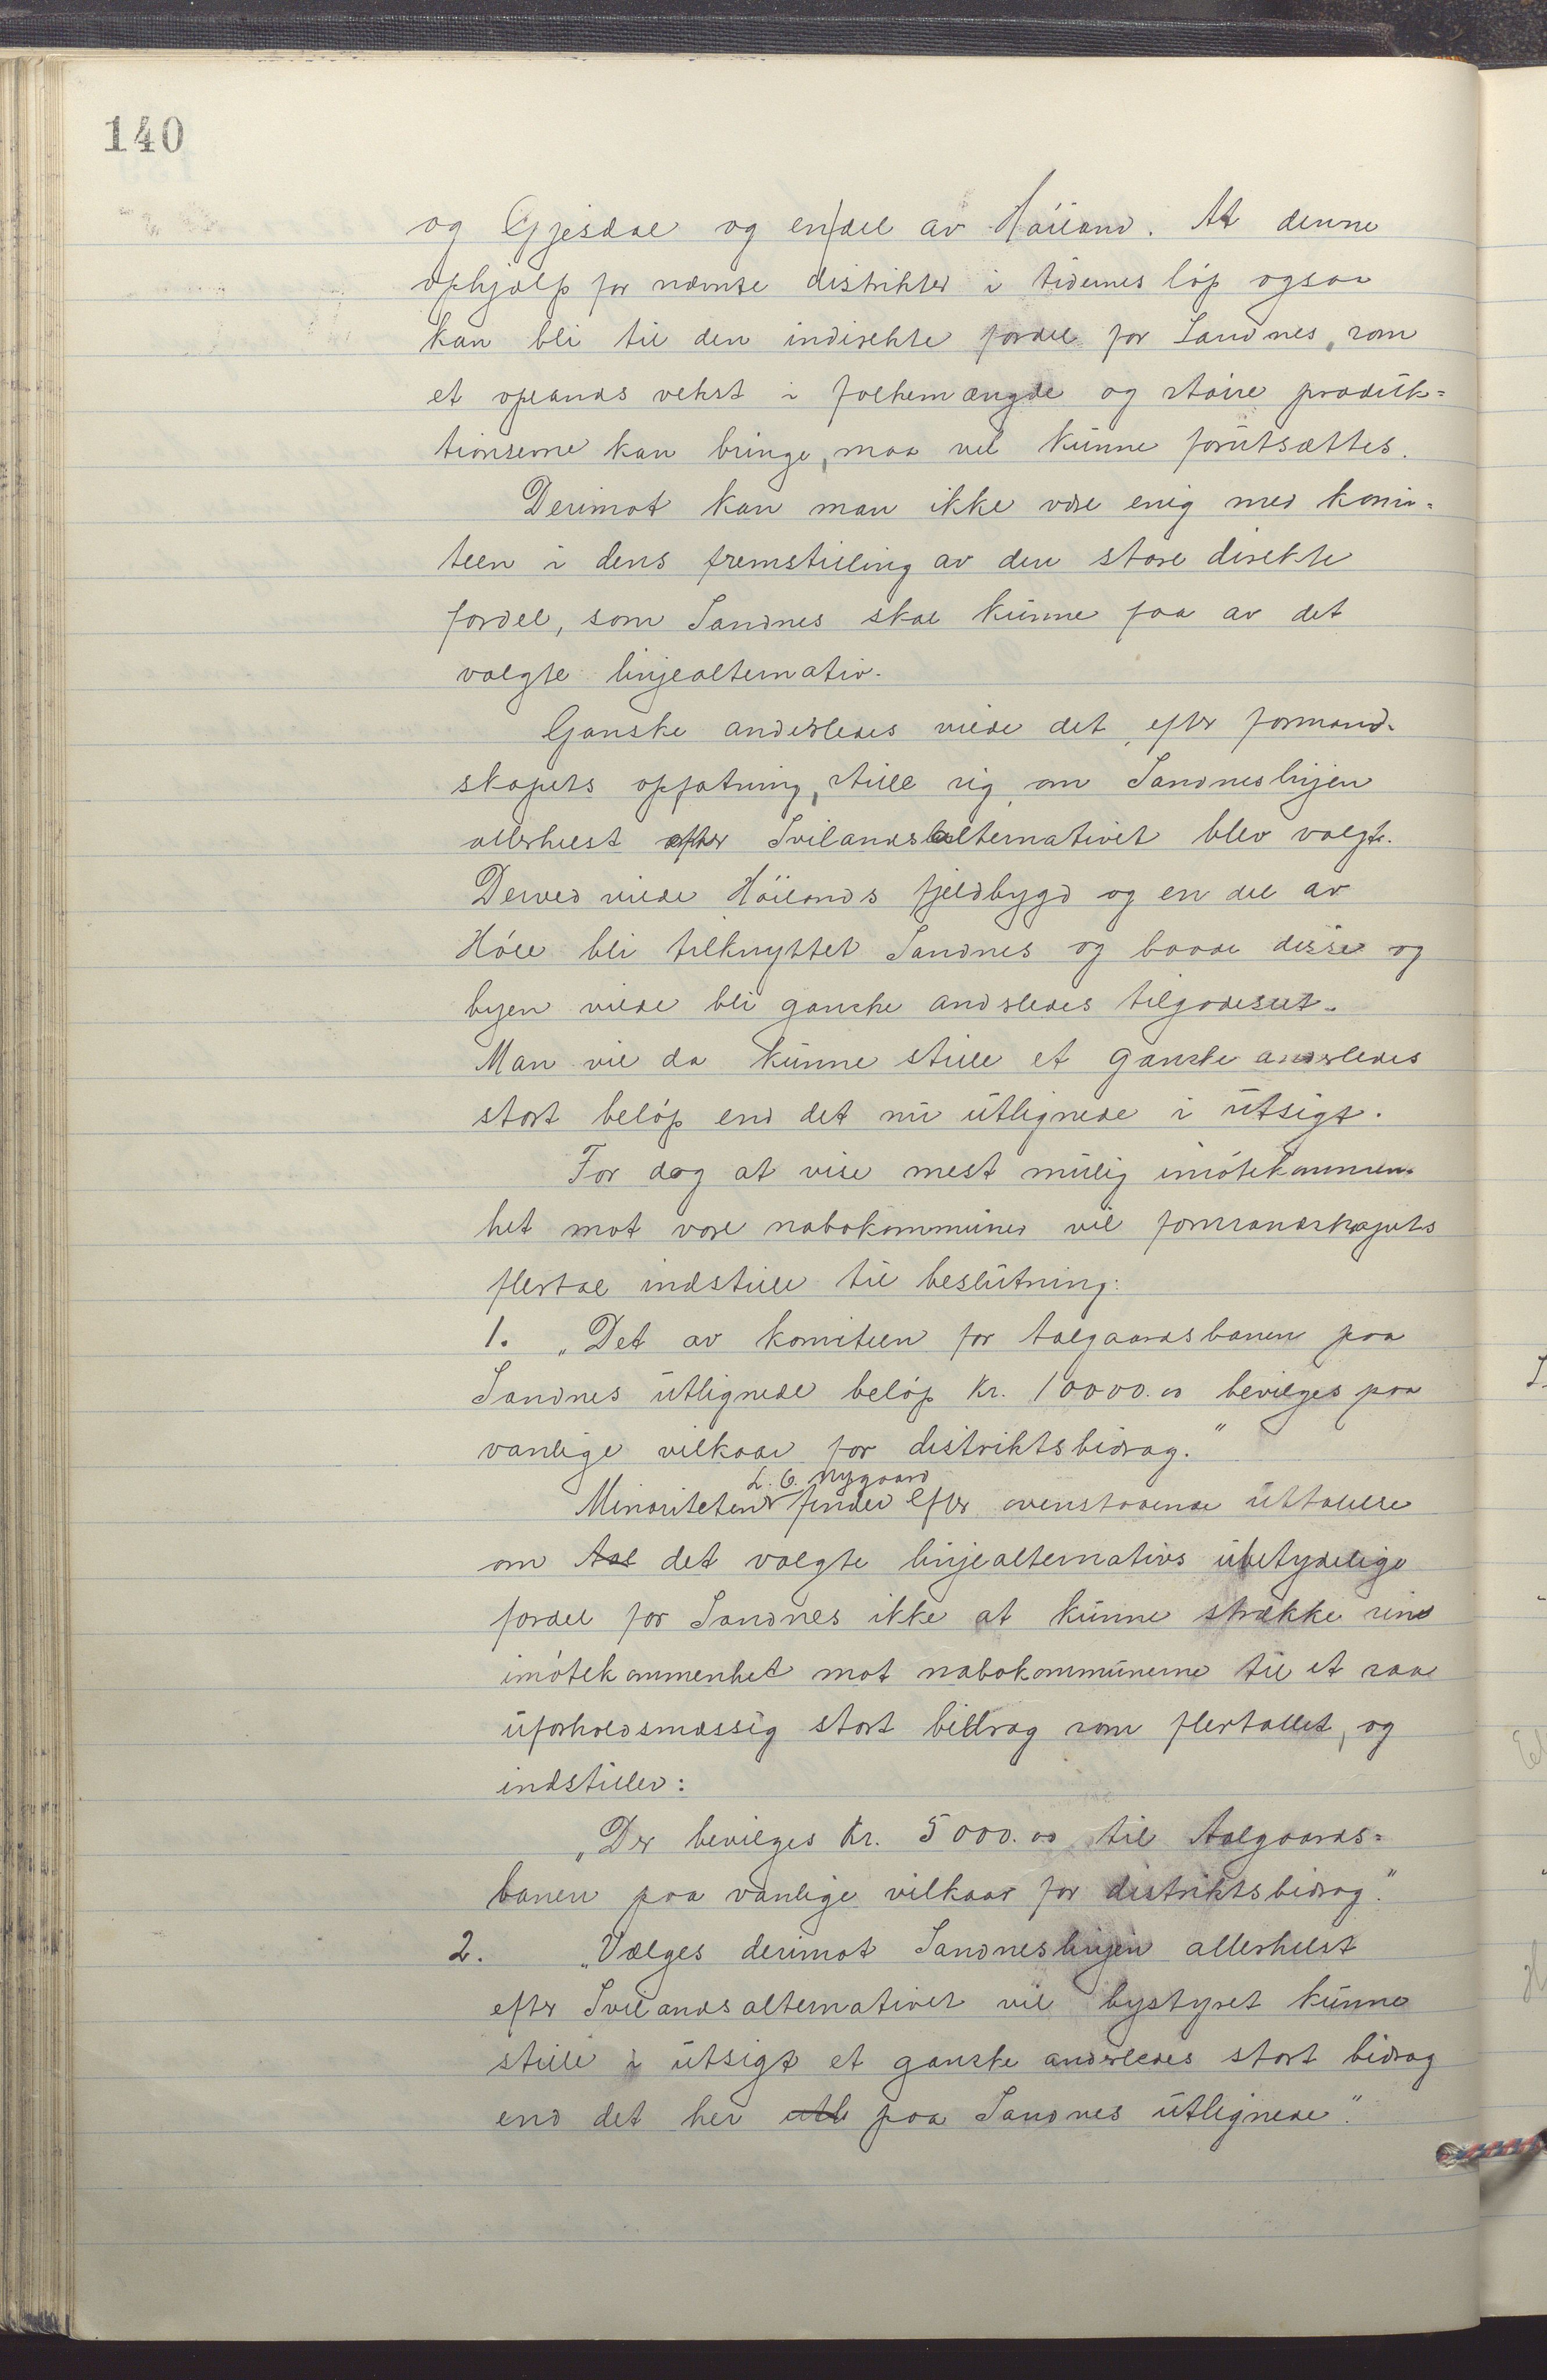 140
og Gjesdal og en del av Høiland. At denne
ophjælp for nævnte distrikter i tidernes løp ogsaa
kan bli til den indirekte fordel for Sandnes, som
et oplands vekst i folkemængde og større produk=
tionserne kan bringe, maa vel kunne forutsættes.
Derimot kan man ikke være enig med komi=
teen i dens fremstilling av den store direkte
fordel, som Sandnes skal kunne faa av det
valgte linjealternativ.
Ganske anderledes vilde det, efter formand-
skapets opfatning, stille sig, om Sandneslinjen
allerhelst efter Svilandsalternativet blev valgt.
Derved vilde Høilands fjeldbygd og en del av
Høle bli tilknyttet Sandnes og baade disse og
byen vilde bli ganske anderledes tilgodeset.
Man vil da kunne stille et ganske anderledes
stort beløp end det nu utlignede i utsigt.
For dog at vise mest mulig imøtekommen-
het mot vore nabokommuner vil formandskapets
flertal indstille til beslutning:
1. „Det av komiteen for Aalgaardsbanen paa
Sandnes utlignede beløp kr. 10000.00 bevilges paa
vanlige vilkaar for distriktsbidrag."
L. O. Nygaard
Minoriteten finder efter ovenstaaende uttalelse
om Aal det valgte linjealternativs ubetydelige
fordel for Sandnes ikke at kunne strække sin
imøtekommenhet mot nabokommunerne til et saa
uforholdsmæssig stort bidrag som flertallet, og
indstiller:
„Der bevilges Kr. 5000.00 til Aalgaards=
banen paa vanlige vilkaar for distriktsbidrag."
2. „Vælges derimot Sandneslinjen allerhelst
efter Svilandsalternativet vil bystyret kunne
stille i utsigt et ganske anderledes stort bidrag
end det her utl paa Sandnes utlignede."